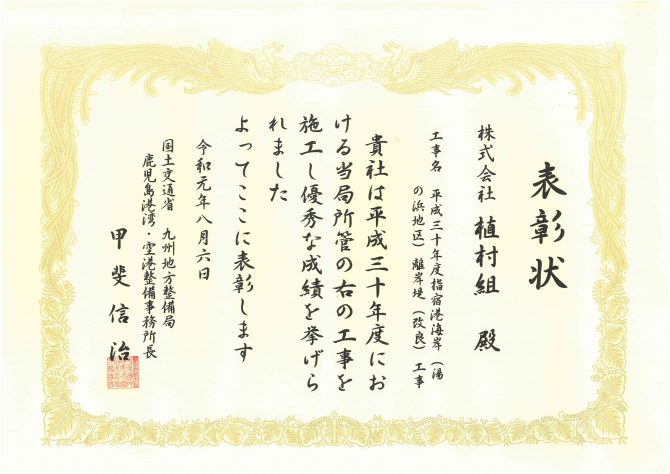 表彰状
株式会社 植村組 殿
工事名 平成三十年度指宿港海岸(湯
の浜地区)離岸堤(改良)工事
貴社は平成三十年度にお
ける当局所管の右の工事を
施工し優秀な成績を挙げら
れました
よってここに表彰します
令和元年八月六日
国土交通省 九州地方整備局
鹿児島港湾・空港整備事務所長
甲斐信治